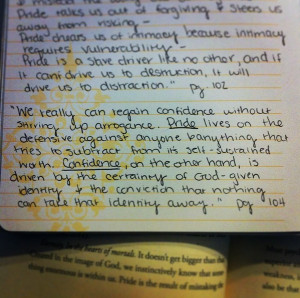 Pride talks us out of forgiving & steers us
away from risking -
Pride cheats us of intimacy because intimacy
requires vulnerability -
Pride is a slave driver like no other, and if
it can't drive us to destruction, it will
drive us to distraction." pg. 102
"We really can regain confidence without
stirring up arrogance. Pride lives on the
defensive against anyone & anything that
tries to subtract from its self-sustained
worth. Confidence, on the other hand, is
driven by the certainty of God-given
identity & the conviction that nothing
can take that identity away." pg 104
in the hearts of mortals. It doesn't get bigger than
in the image of God, we instinctively know that
enormous is within us. Pride is the result of mistaking
weakness,
also be that